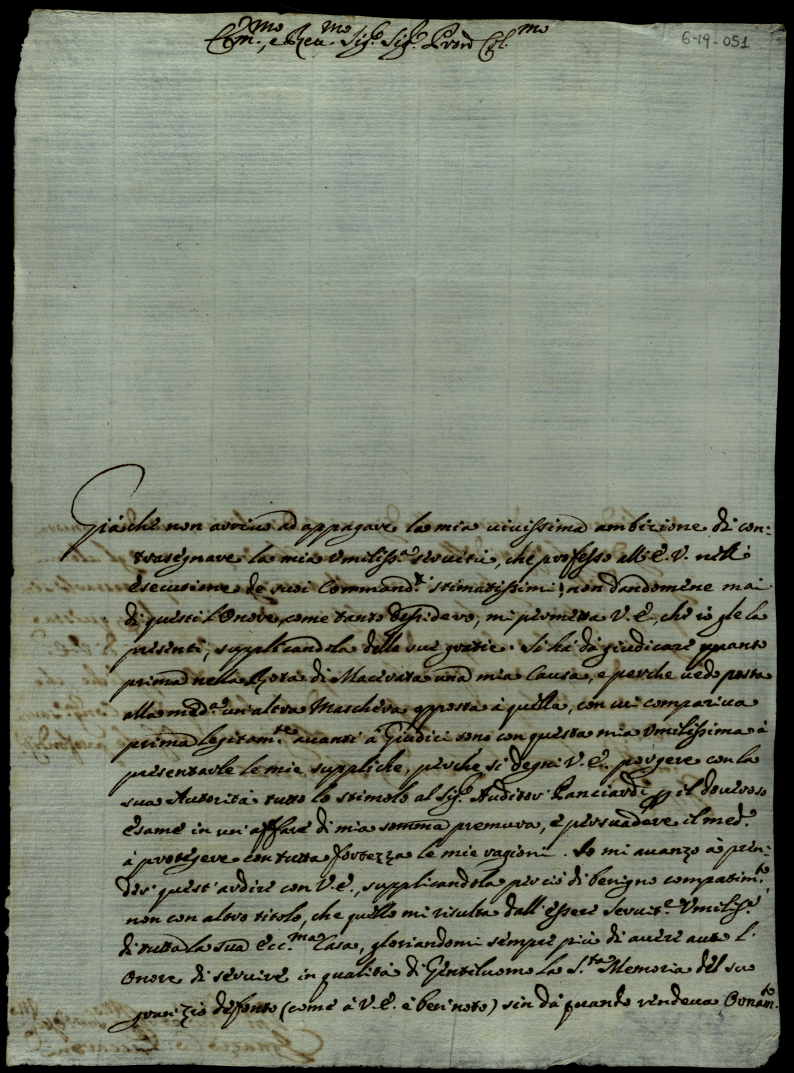 Em.mo, e Reu.mo Sig.r Sig.r Pron Col.mo
6-19-051
Giàche non arriuo ad appagare la mia viuissima ambizione di con-
trasegnare la mia Vmiliss.a seruitù, che professo all'E. V. nell'
esecutione de suoi Command.ti stimatissimi, non dandomene mai
di questi l'Onore, come tanto desidero, mi permetta V. E., che io gle la
presenti, supplicandola delle sue gratie. Si hà dà giudicare quanto
prima nella Rota di Macerata una mia Causa, e perche uedo posta
alla med.a un'altra Maschera opposta à quella, con cui compariua
prima legitam.te auanti à Giudici sono con questa mia Vmilissima à
presentarle le mie suppliche, perche si degni V. E. porgere con la
sua Autorità tutto lo stimolo al Sig.r Auditor Panciardi p il doueroso
esame in un'affare di mia somma premura, e persuadere il med.o
à proteggere con tutta fortezza le mie ragioni. Io mi auanzo à pren-
der quest'ardire con V. E., supplicandola perciò di benigno compatim.to
non con altro titolo, che quello mi risulta dall'essere Seruit.e Vmiliss.o
di tutta la sua Ecc.ma Casa, gloriandomi sempre più di auere auto l'
Onore di seruire in qualità di Gentiluomo la S.ta Memoria del suo
gran Zio defonto (come à V. E. è ben noto) sin dà quando rendeua Ornam.to